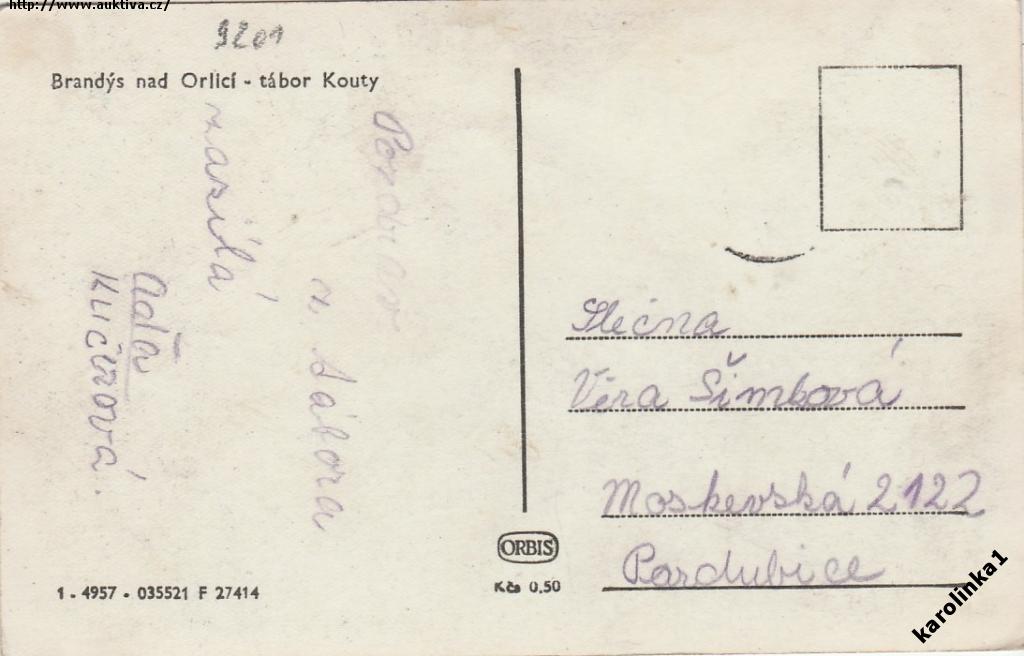 http://www.auktiva.cz/
9201
Brandýs nad Orlicí - tábor Kouty
Pozdrav
z tábora
zasílá
Adla
Kučinová.
Slečna
Věra Šimková
Moskevská 2122
Pardubice
ORBIS
Kčs 0,50
1 - 4957 - 035521 F 27414
karolinka1